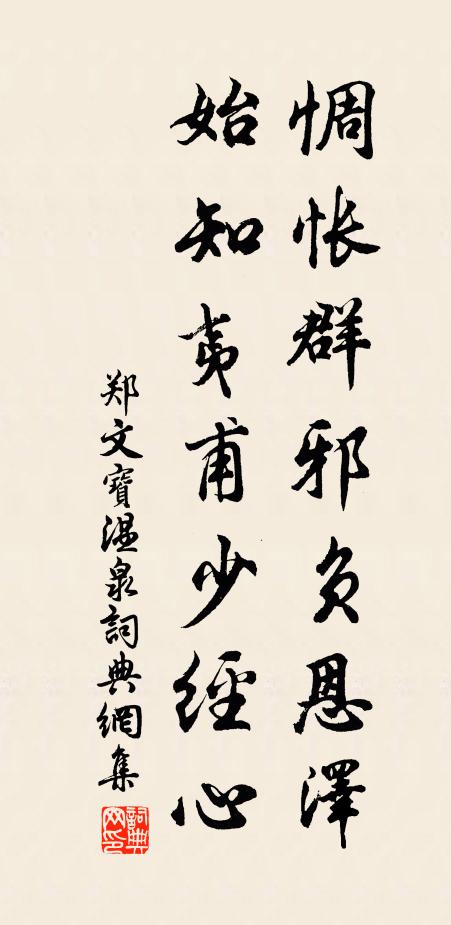 惆怅群邪负恩泽
始知夷甫少經心
郑文寶温泉詞典網集
詞典網印